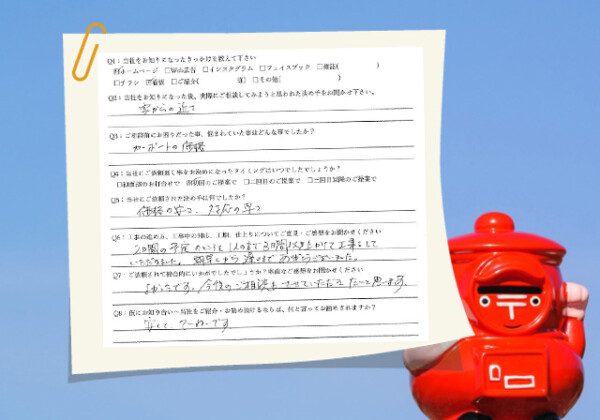 Q1：当社をお知りになったきっかけを教えて下さい
ホームページ □Web広告 □インスタグラム □フェイスブック □雑誌( )
□チラシ 看板 □ご紹介( 様) □その他( )
Q2：当社をお知りになった後、実際にご相談してみようと思われた決め手をお聞かせ下さい。
家からの近さ
Q3：ご相談前にお困りだった事、悩まれていた事はどんな事でしたか？
カーポートの価格
Q4：当社にご依頼頂く事をお決めになったタイミングはいつでしたでしょうか？
□初回のご提案で □二回目のご提案で □三回目以降のご提案で
Q5：当社にご依頼された決め手は何でしたか？
価格の安さ、対応の早さ
Q6：工事の進め方、工事中の対応、工期、仕上りについてご意見・ご感想をお聞かせください
2日間の予定のところ1人の方で
工事をして
いただきました。朝早くから
ありがとうございました。
Q7：ご依頼されて総合的にいかがでしたでしょうか？率直なご感想をお聞かせください
よかったです。今後のご相談もさせていただきたいと思います。
Q8：仮にお知り合いへ当社をご紹介・お勧め頂けるならば、何と言ってお勧めされますか？
安くて、ていねいです
〒